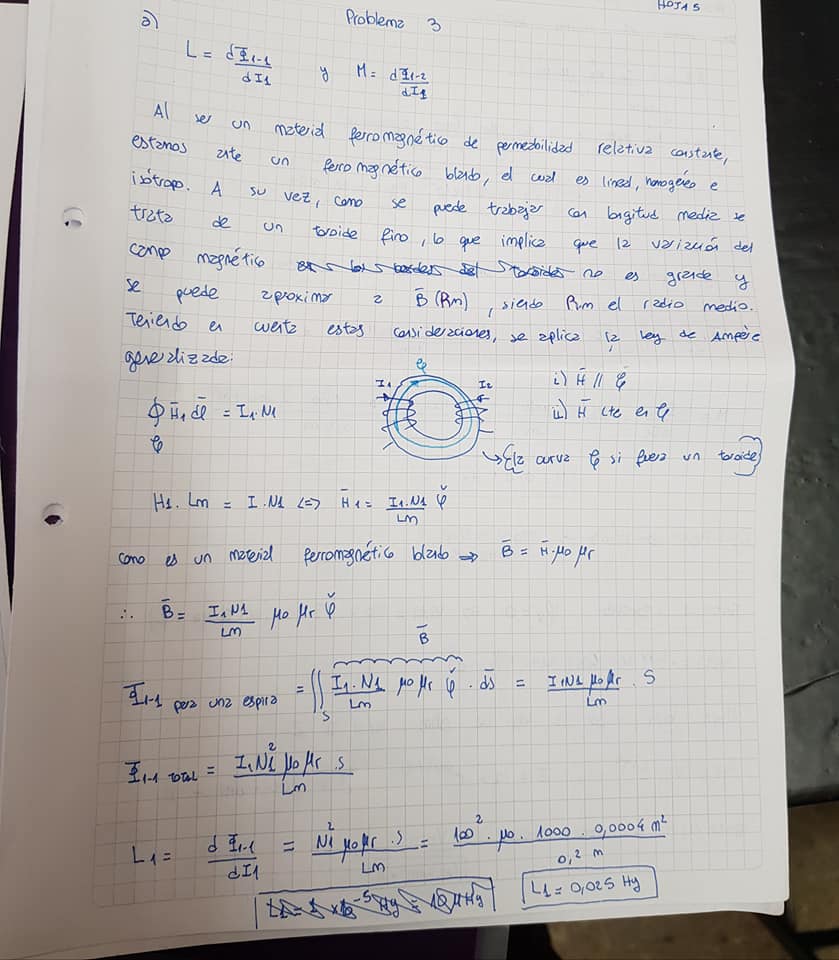 HOJA 5
Problema 3
a)
L = dΦ1-1/dI1 y M = dΦ1-2/dI1
Al ser un material ferromagnético de permeabilidad relativa constante,
estamos ante un ferromagnético blando, el cual es lineal, homogéneo e
isótropo. A su vez, como se puede trabajar con longitud media se
trata de un toroide fino, lo que implica que la variación del
campo magnético en los bordes del toroide no es grande y
se puede aproximar a B̄(Rm), siendo Rm el radio medio.
Teniendo en cuenta estas consideraciones, se aplica la ley de Ampère
generalizada:
φ
I1 I2
i) H̄ // φ
ii) H̄ cte en φ
∮φ H̄1 d̄l = I1.N1
↳ [la curva φ si fuera un toroide]
H1. Lm = I.N1 <=> H̄1 = I1.N1/Lm φ̆
como es un material ferromagnético blando => B̄ = H̄.μ0 μr
∴ B̄ = I1N1/Lm μ0 μr φ̆
B̄
Φ1-1 para una espira = ∬S I1.N1/Lm μ0 μr φ̆ . d̄s = I1N1 μ0 μr/Lm . S
Φ1-1 total = I1N1² μ0 μr .s/Lm
L1 = dΦ1-1/dI1 = N1² μ0 μr .s/Lm = 100² . μ0 . 1000 . 0,0004 m²/0,2 m
L1 = 0,025 Hy